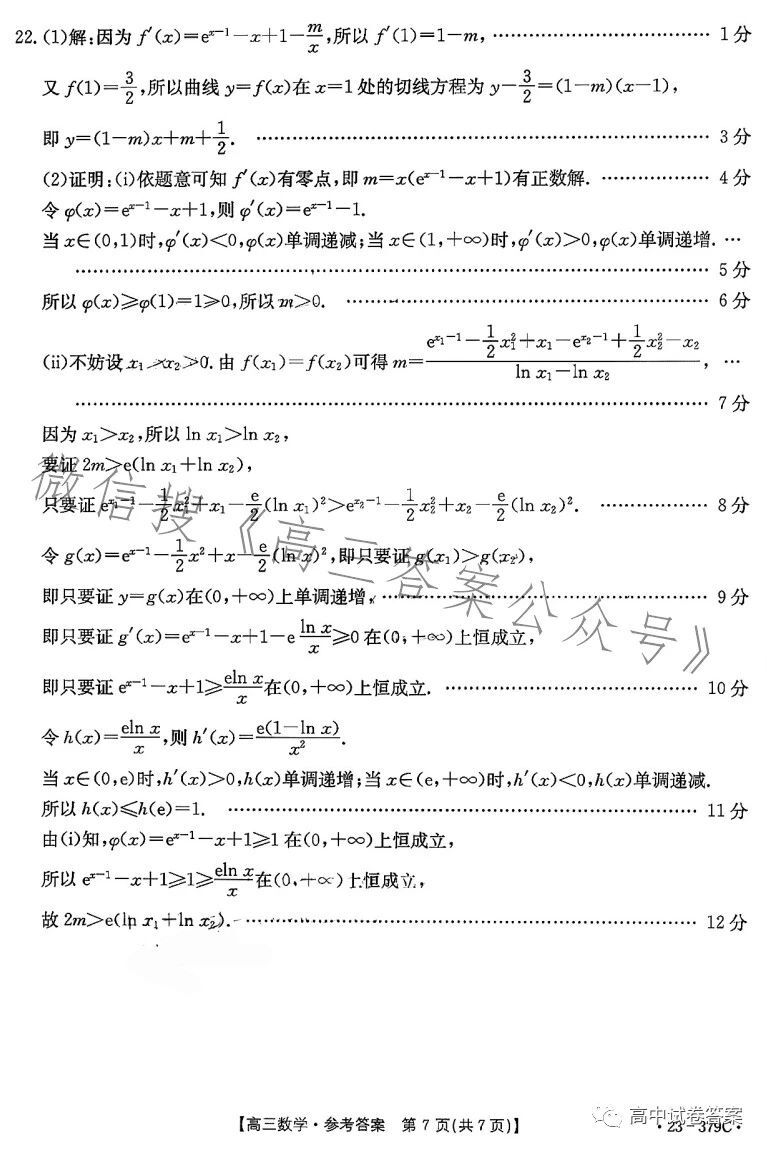 22.(1)解:因为 f′(x)=e^{x-1}-x+1-\frac{m}{x},所以 f′(1)=1-m, …… 1分
又 f(1)=\frac{3}{2},所以曲线 y=f(x)在 x=1 处的切线方程为 y-\frac{3}{2}=(1-m)(x-1),
即 y=(1-m)x+m+\frac{1}{2}. …… 3分
(2)证明:(ⅰ)依题意可知 f′(x)有零点,即 m=x(e^{x-1}-x+1)有正数解. …… 4分
令 φ(x)=e^{x-1}-x+1,则 φ′(x)=e^{x-1}-1.
当 x∈(0,1)时,φ′(x)<0,φ(x)单调递减;当 x∈(1,+∞)时,φ′(x)>0,φ(x)单调递增. …
…… 5分
所以 φ(x)⩾φ(1)=1⩾0,所以 m>0. …… 6分
(ⅱ)不妨设 x₁>x₂>0.由 f(x₁)=f(x₂)可得 m=\frac{e^{x₁-1}-\frac{1}{2}x₁²+x₁-e^{x₂-1}+\frac{1}{2}x₂²-x₂}{ln x₁-ln x₂}, …
…… 7分
因为 x₁>x₂,所以 ln x₁>ln x₂,
要证 2m>e(ln x₁+ln x₂),
只要证 e^{x₁-1}-\frac{1}{2}x₁²+x₁-\frac{e}{2}(ln x₁)²>e^{x₂-1}-\frac{1}{2}x₂²+x₂-\frac{e}{2}(ln x₂)². …… 8分
令 g(x)=e^{x-1}-\frac{1}{2}x²+x-\frac{e}{2}(ln x)²,即只要证 g(x₁)>g(x₂),
即只要证 y=g(x)在(0,+∞)上单调递增, …… 9分
即只要证 g′(x)=e^{x-1}-x+1-e\frac{ln x}{x}⩾0 在(0,+∞)上恒成立,
即只要证 e^{x-1}-x+1⩾\frac{eln x}{x}在(0,+∞)上恒成立. …… 10分
令 h(x)=\frac{eln x}{x},则 h′(x)=\frac{e(1-ln x)}{x²}.
当 x∈(0,e)时,h′(x)>0,h(x)单调递增;当 x∈(e,+∞)时,h′(x)<0,h(x)单调递减.
所以 h(x)⩽h(e)=1. …… 11分
由(ⅰ)知,φ(x)=e^{x-1}-x+1⩾1 在(0,+∞)上恒成立,
所以 e^{x-1}-x+1⩾1⩾\frac{eln x}{x}在(0,+∞)上恒成立,
故 2m>e(ln x₁+ln x₂). …… 12分
微信搜《高三答案公众号》
【高三数学·参考答案 第7页(共7页)】
高中试卷答案
·23-379C·